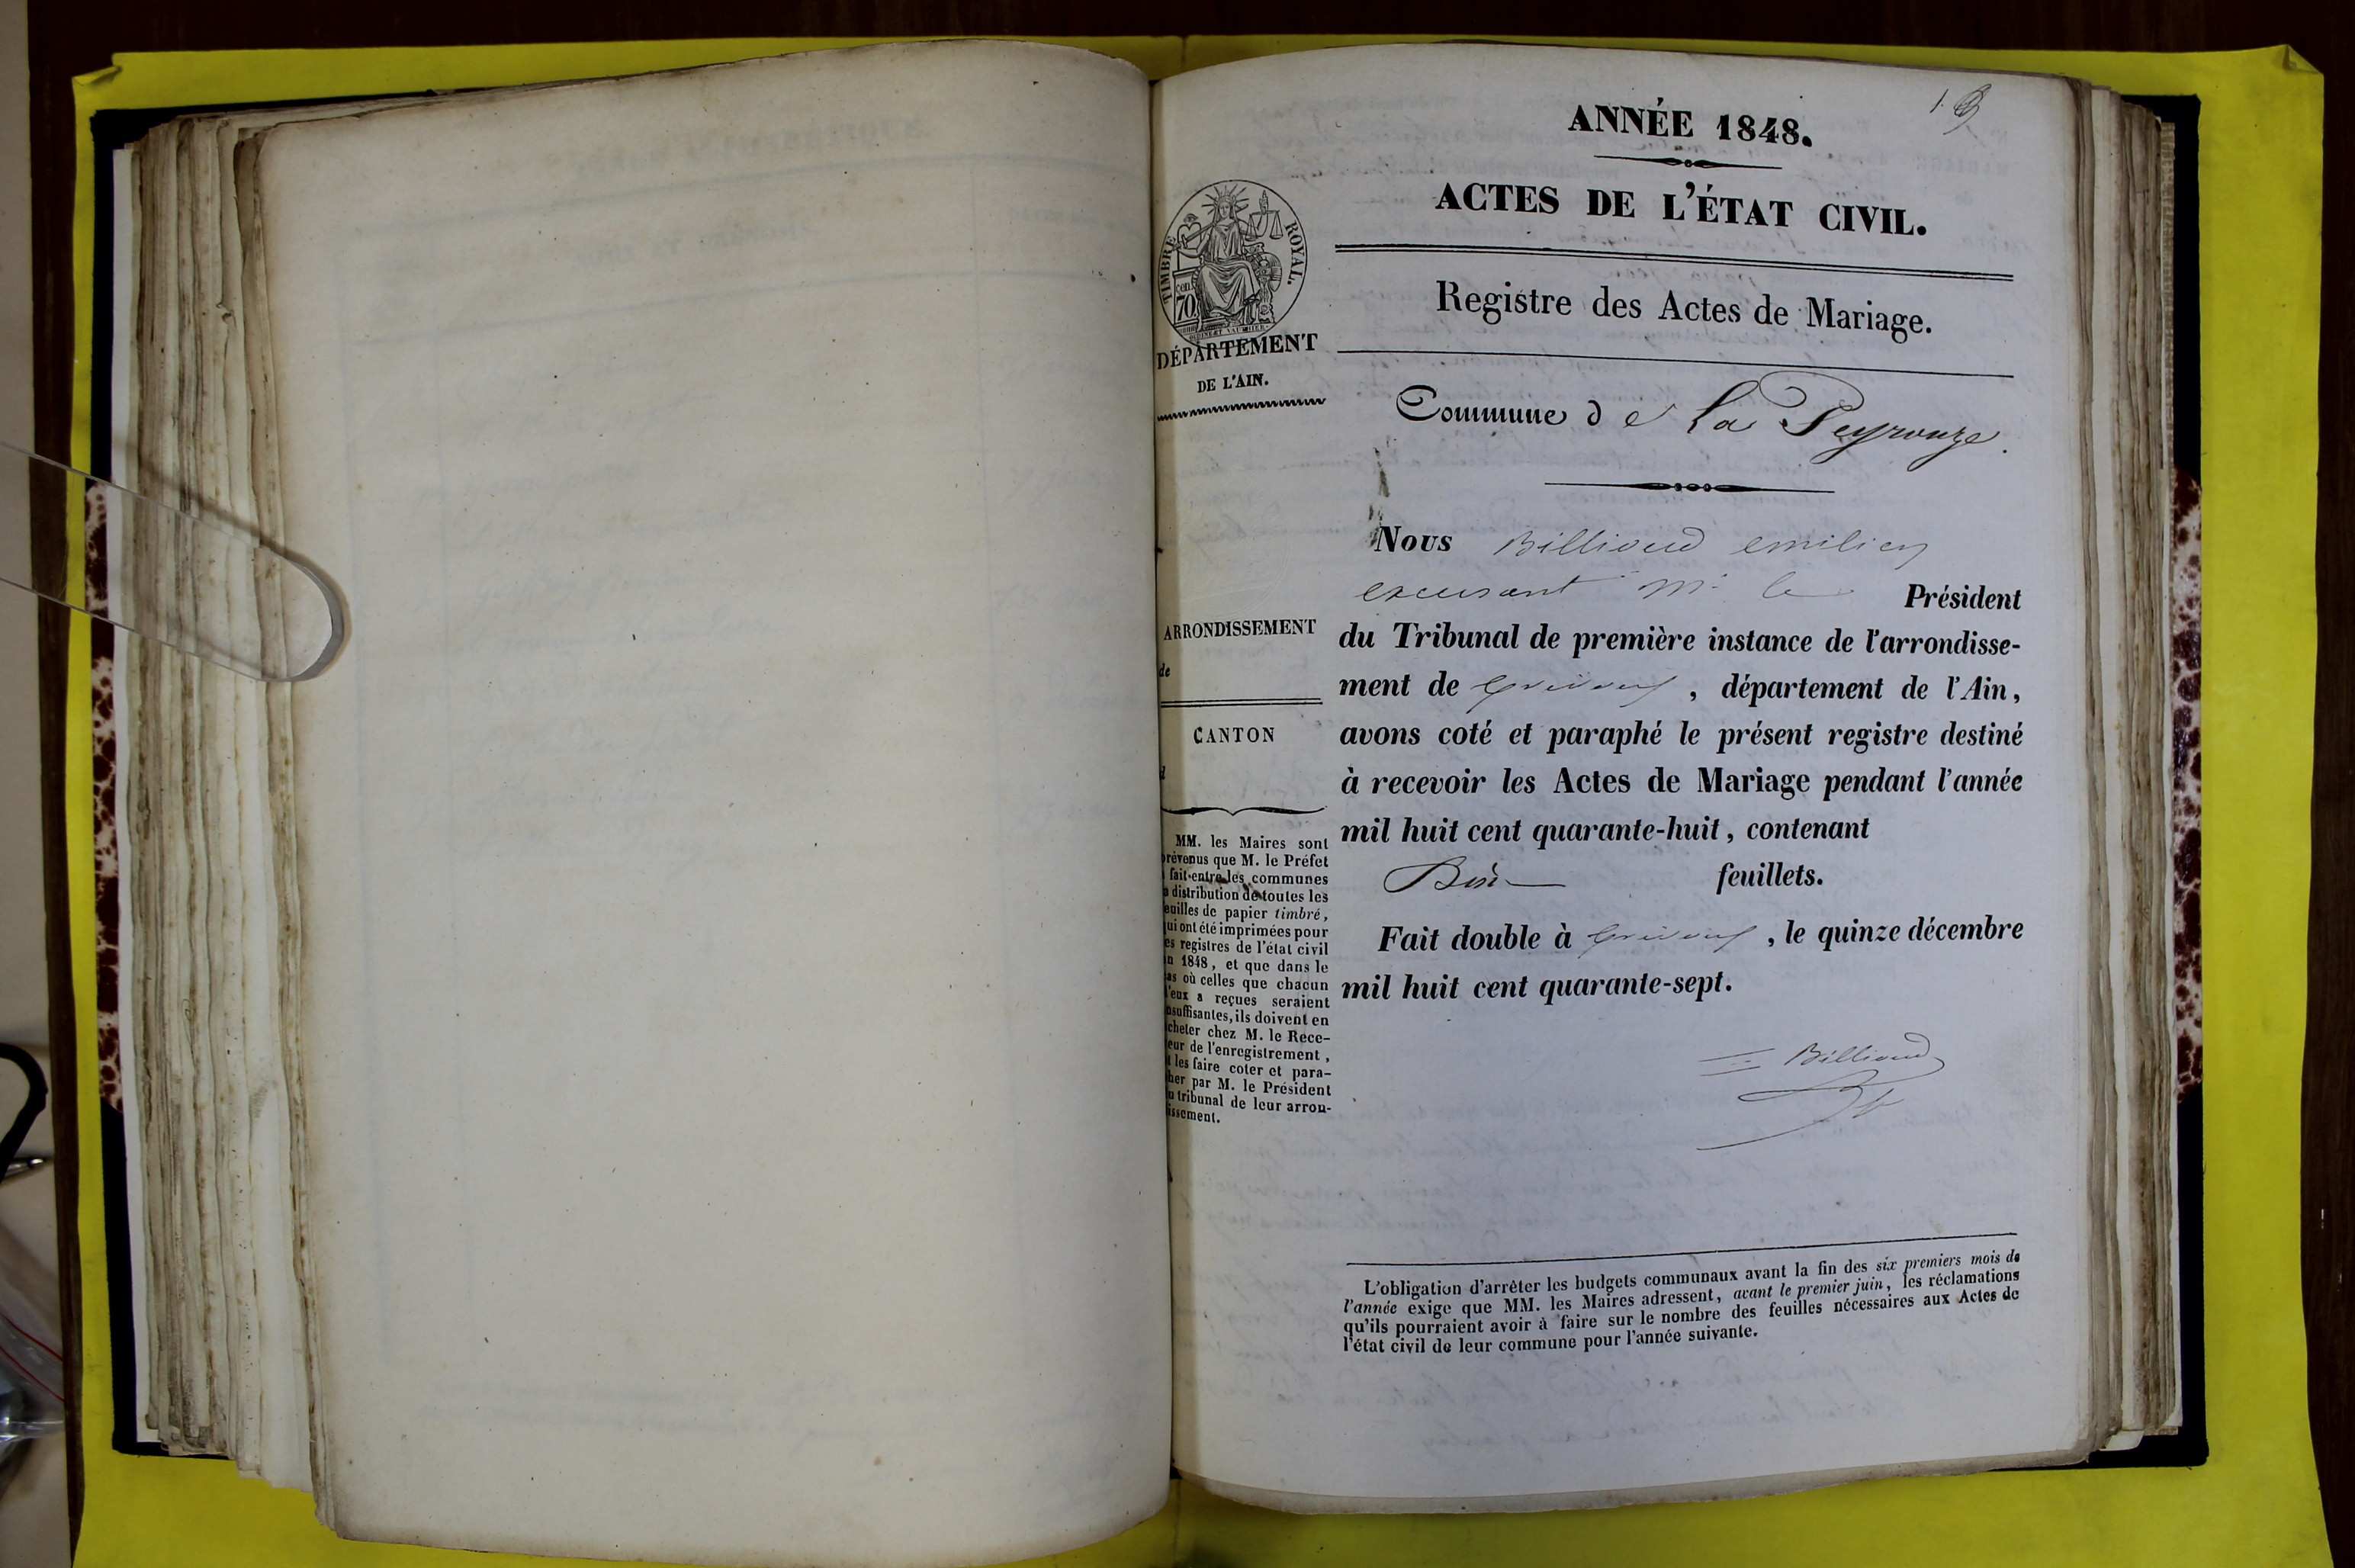 1.
ANNÉE 1848.
ACTES DE L'ÉTAT CIVIL.
Registre des Actes de Mariage.
TIMBRE ROYAL.
cen.
70
DÉPARTEMENT
DE L'AIN.
Commune de La Peyrouze.
Nous Billioud emilien
excusant Mr le Président
du Tribunal de première instance de l'arrondisse-
ment de Trévoux, département de l'Ain,
avons coté et paraphé le présent registre destiné
à recevoir les Actes de Mariage pendant l'année
mil huit cent quarante-huit, contenant
feuillets.
Fait double à Trévoux, le quinze décembre
mil huit cent quarante-sept.
Billioud
ARRONDISSEMENT
de
CANTON
d
MM. les Maires sont
prévenus que M. le Préfet
fait entre les communes
distribution de toutes les
feuilles de papier timbré,
qui ont été imprimées pour
es registres de l'état civil
n 1848, et que dans le
as où celles que chacun
d'eux a reçues seraient
nsuffisantes, ils doivent en
cheter chez M. le Rece-
eur de l'enregistrement,
t les faire coter et para-
her par M. le Président
u tribunal de leur arron-
issement.
L'obligation d'arrêter les budgets communaux avant la fin des six premiers mois de
l'année exige que MM. les Maires adressent, avant le premier juin, les réclamations
qu'ils pourraient avoir à faire sur le nombre des feuilles nécessaires aux Actes de
l'état civil de leur commune pour l'année suivante.